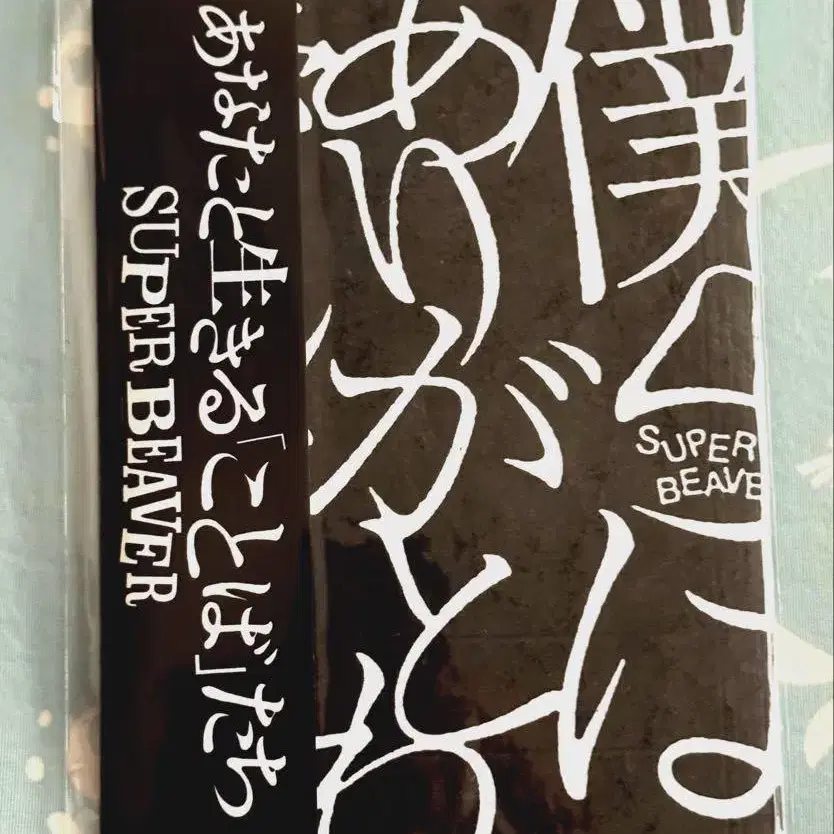 僕
は
SUPER
BEAVE
ありがと
あなたと生きる「ことば」たち
SUPER BEAVER